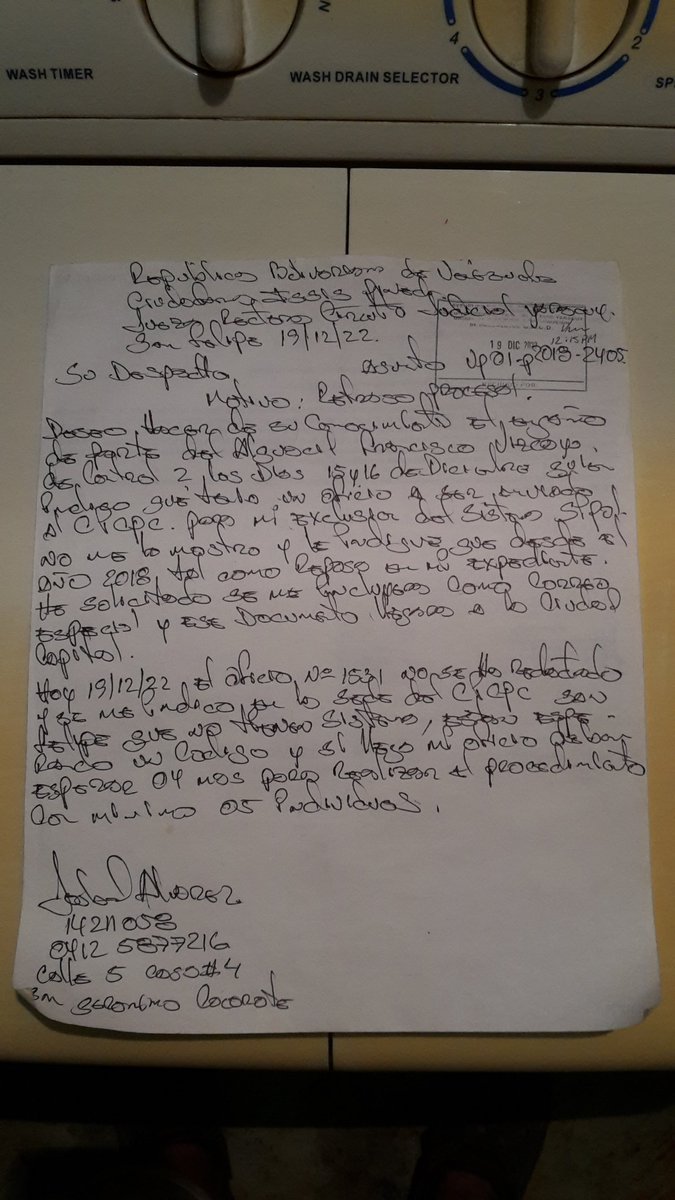 WASH TIMER
WASH DRAIN SELECTOR
4
3
2
República Bolivariana de Venezuela
Ciudadana
Jueza Rectora Circuito Judicial Yaracuy.
San Felipe 19/12/22.
19 DIC
12:15 PM
Asunto Up01-p2018-2405
Su Despacho
Motivo: Retraso procesal.
Deseo Hacer de su Conocimiento El
de parte del Alguacil Francisco
de Control 2, los Días 15 y 16 de Diciembre
Indico que un oficio a ser enviado
Al CICPC. para mi Exclusión del Sistema SIPOL
No me lo mostro y le indique que desde el
Año 2018, tal como Reposa en mi Expediente.
He solicitado se me Como Correo
Especial y ESE Documento a la Ciudad
Capital.
Hoy 19/12/22 El oficio Nº 1531 No se Ha Redactado
y se me indico en la sede del CICPC San
Felipe que no Sistema, Están Espe-
Rando un Codigo y si mi oficio
Esperar 04 mas para Realizar el procedimiento
Con minimo 05 Individuos.
Alvarez
14211058
0412 5877216
Calle 5 Casa #4
San Geronimo Cocorote